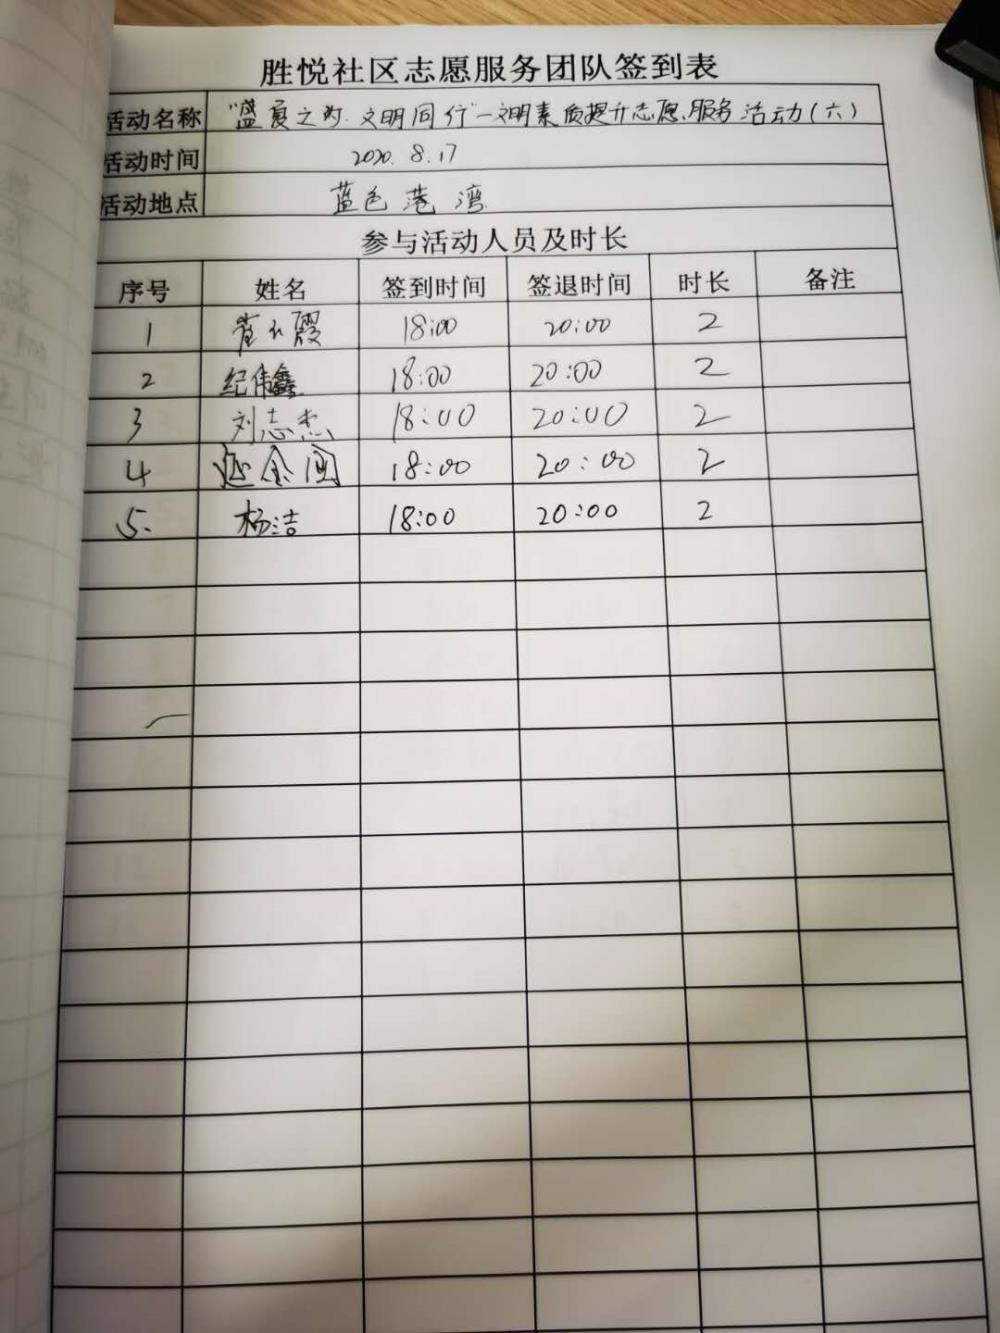 胜悦社区志愿服务团队签到表
活动名称 "盛夏之时·文明同行"—文明素质提升志愿服务活动(六)
活动时间 2020.8.17
活动地点 蓝色港湾
参与活动人员及时长
序号 姓名 签到时间 签退时间 时长 备注
1 18:00 20:00 2
2 纪伟鑫 18:00 20:00 2
3 刘志杰 18:00 20:00 2
4 18:00 20:00 2
5. 杨洁 18:00 20:00 2